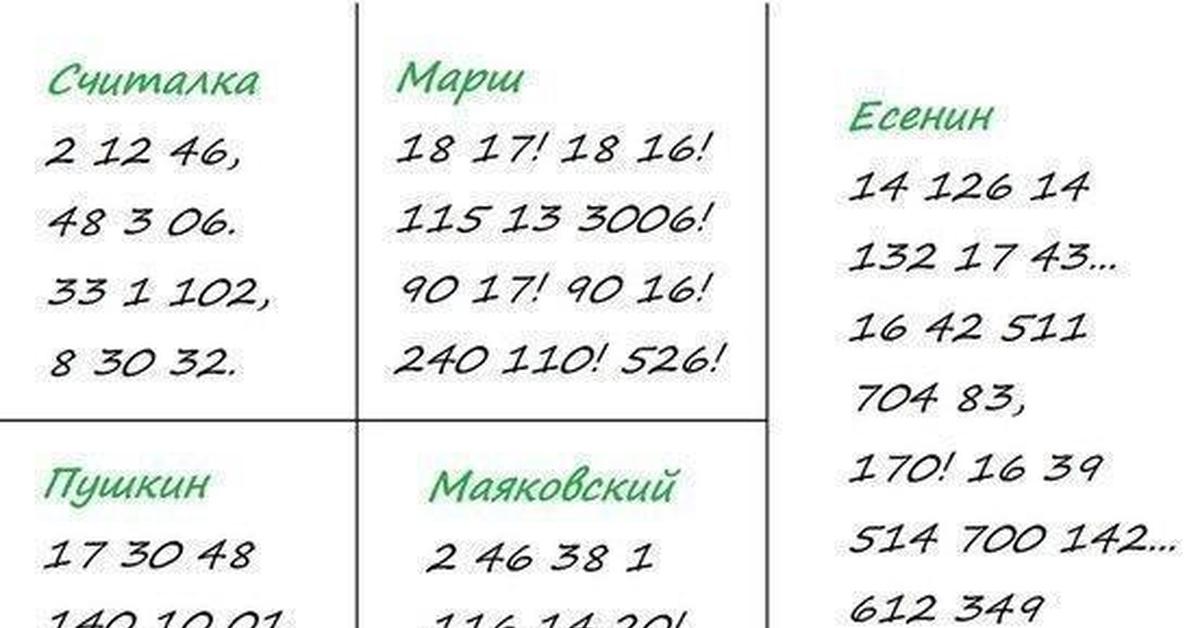 Считалка
2 12 46,
48 3 06.
33 1 102,
8 30 32.
Марш
18 17! 18 16!
115 13 3006!
90 17! 90 16!
240 110! 526!
Есенин
14 126 14
132 17 43...
16 42 511
704 83,
170! 16 39
514 700 142...
612 349
Пушкин
17 30 48
140 10 01
Маяковский
2 46 38 1
116 14 20!